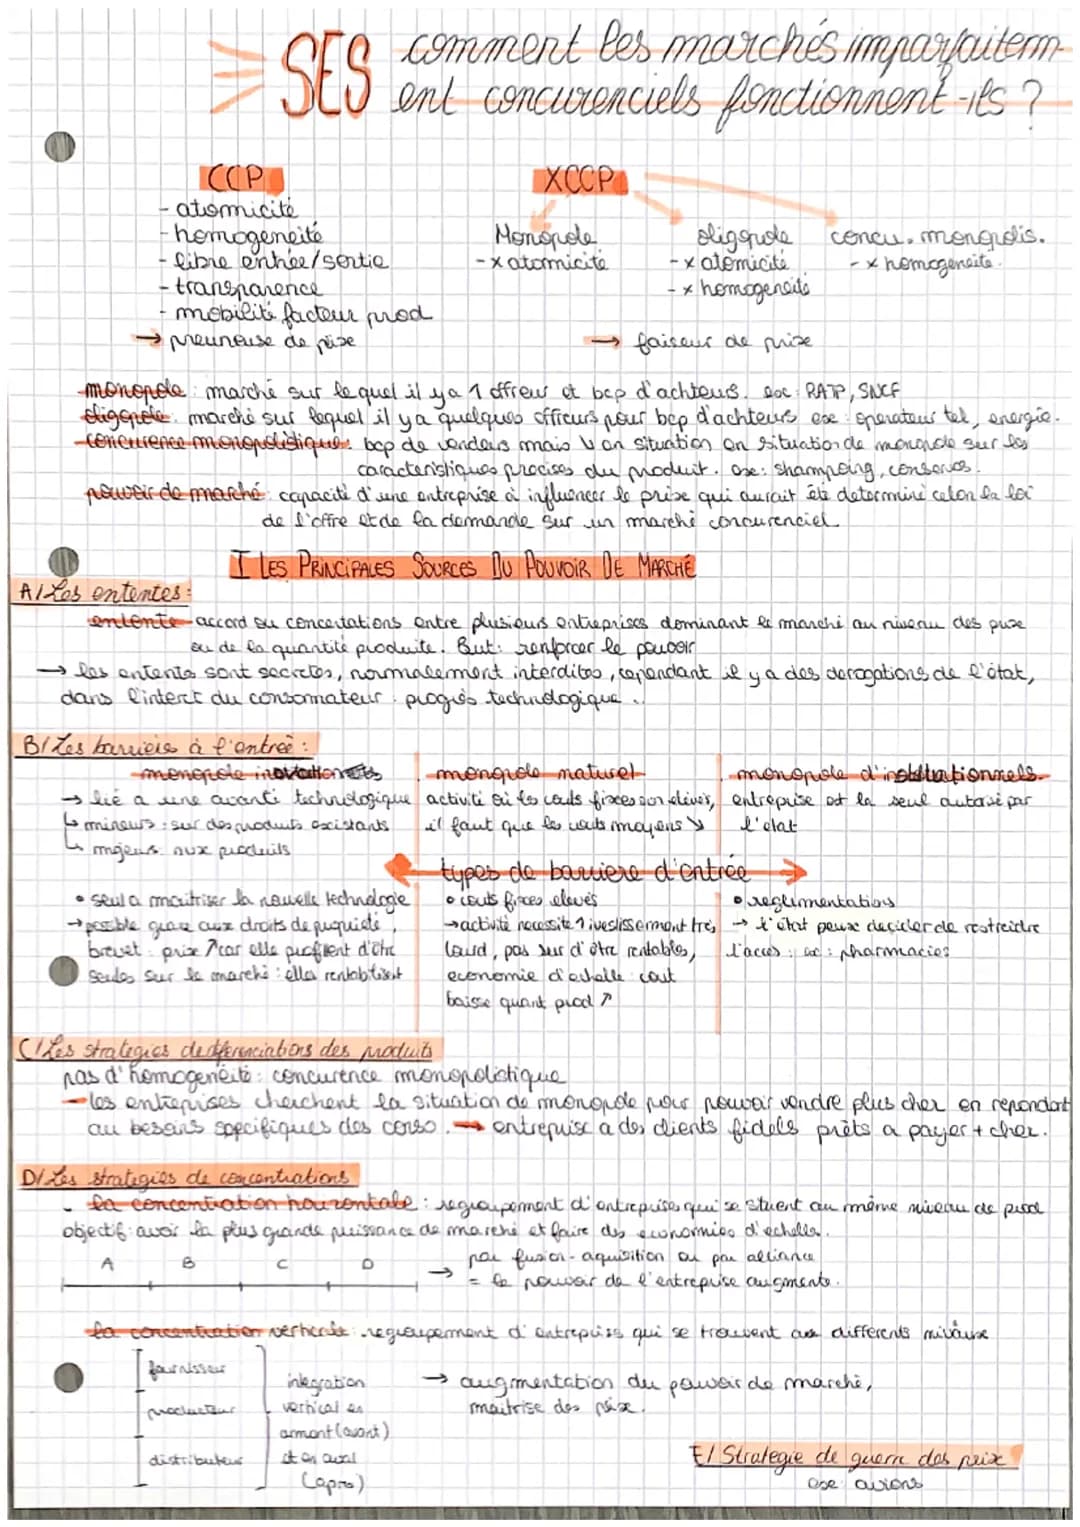 SES comment les marchés imparfaitem-
ent concurenciels fonctionnent-ils ?
CCP
- atomicité
- homogeneité
- libre entrée/sortie
- transparence
- mobilité facteur prod
→ preuneuse de prix
XCCP
Monopole
- x atomicité
oligopole
- x atomicité
- x homogeneité
concu. monopolis.
- x homogeneite.
→ faiseur de prix
monopole : marché sur lequel il y a 1 offreur et bcp d'achteurs. ex : RATP, SNCF
oligopole : marché sur lequel il y a quelques offreurs pour bcp d'achteurs ex : operateur tel, energie.
concurence monopolistique : bcp de vendeurs mais en situation en situation de monopole sur les
caracteristiques precises du produit. ex : shampoing, conserves.
pouvoir de marché : capacité d'une entreprise à influencer le prix qui aurait été determiné celon la loi
de l'offre et de la demande sur un marché concurenciel
I LES PRINCIPALES SOURCES DU POUVOIR DE MARCHÉ
A/ Les ententes :
entente accord ou concertations entre plusieurs entreprises dominant le marché au niveau des prix
ou de la quantité produite. But : renforcer le pouvoir
→ les ententes sont secretes, normalement interdites, cependant il y a des derogations de l'état,
dans l'interet du consomateur : progrès technologique ..
B/ Les barrieres à l'entree :
monopole
→ lié a une avancé technologique
↳ mineurs : sur des produits existants
↳ majeurs : nux produits
monopole naturel
activité où les couts fixes son elevés,
il faut que les couts moyens ↘
monopole d'institutionnels.
entreprise est la seul autorisé par
l'état
types de barriere d'entrée
• seul a maitriser la nouvelle technologie
→ possible grace aux droits de propriété,
brevet : prix ↗ car elle profitent d'être
seules sur le marché : elles rentabilisent
• couts fixes elevés
→ activité necessite 1 ivestissement tres
lourd, pas sur d'être rentables,
economie d'echelle : cout
baisse quant prod ↗
• reglementations
→ l'état peux decider de restreidre
l'accès : ex : pharmacies
C/ Les strategies de differenciations des produits
pas d'homogeneité : concurence monopolistique
- les entreprises cherchent la situation de monopole pour pouvoir vendre plus cher en repondant
au besoins specifiques des conso. → entreprise a des clients fidels prêts a payer + cher.
D/ Les strategies de concentrations
- la concentration horizontale : regroupement d'entreprises qui se situent au même niveau de prod
objectif : avoir la plus grande puissance de marché et faire des economies d'echelles.
A B C D
→ par fusion-aquisition ou par alliance
= le pouvoir de l'entreprise augmente.
la concentration verticale : regroupement d'entreprises qui se trouvent aux differents niveaux
fournisseur
producteur
distributeur
integration
vertical en
amont (avant)
et en aval
(apres)
→ augmentation du pouvoir de marché,
maitrise des prix.
E/ Strategie de guerre des prix
ex : avions